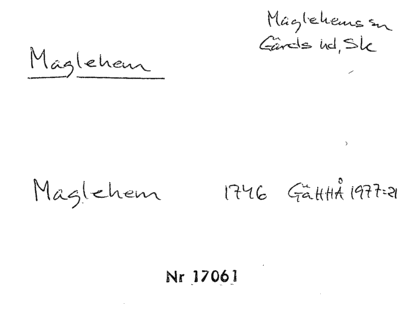 Maglehems sn
Gärds hd, Sk
Maglehem
Maglehem 1746 GäHHÅ 1977:21
Nr 17061